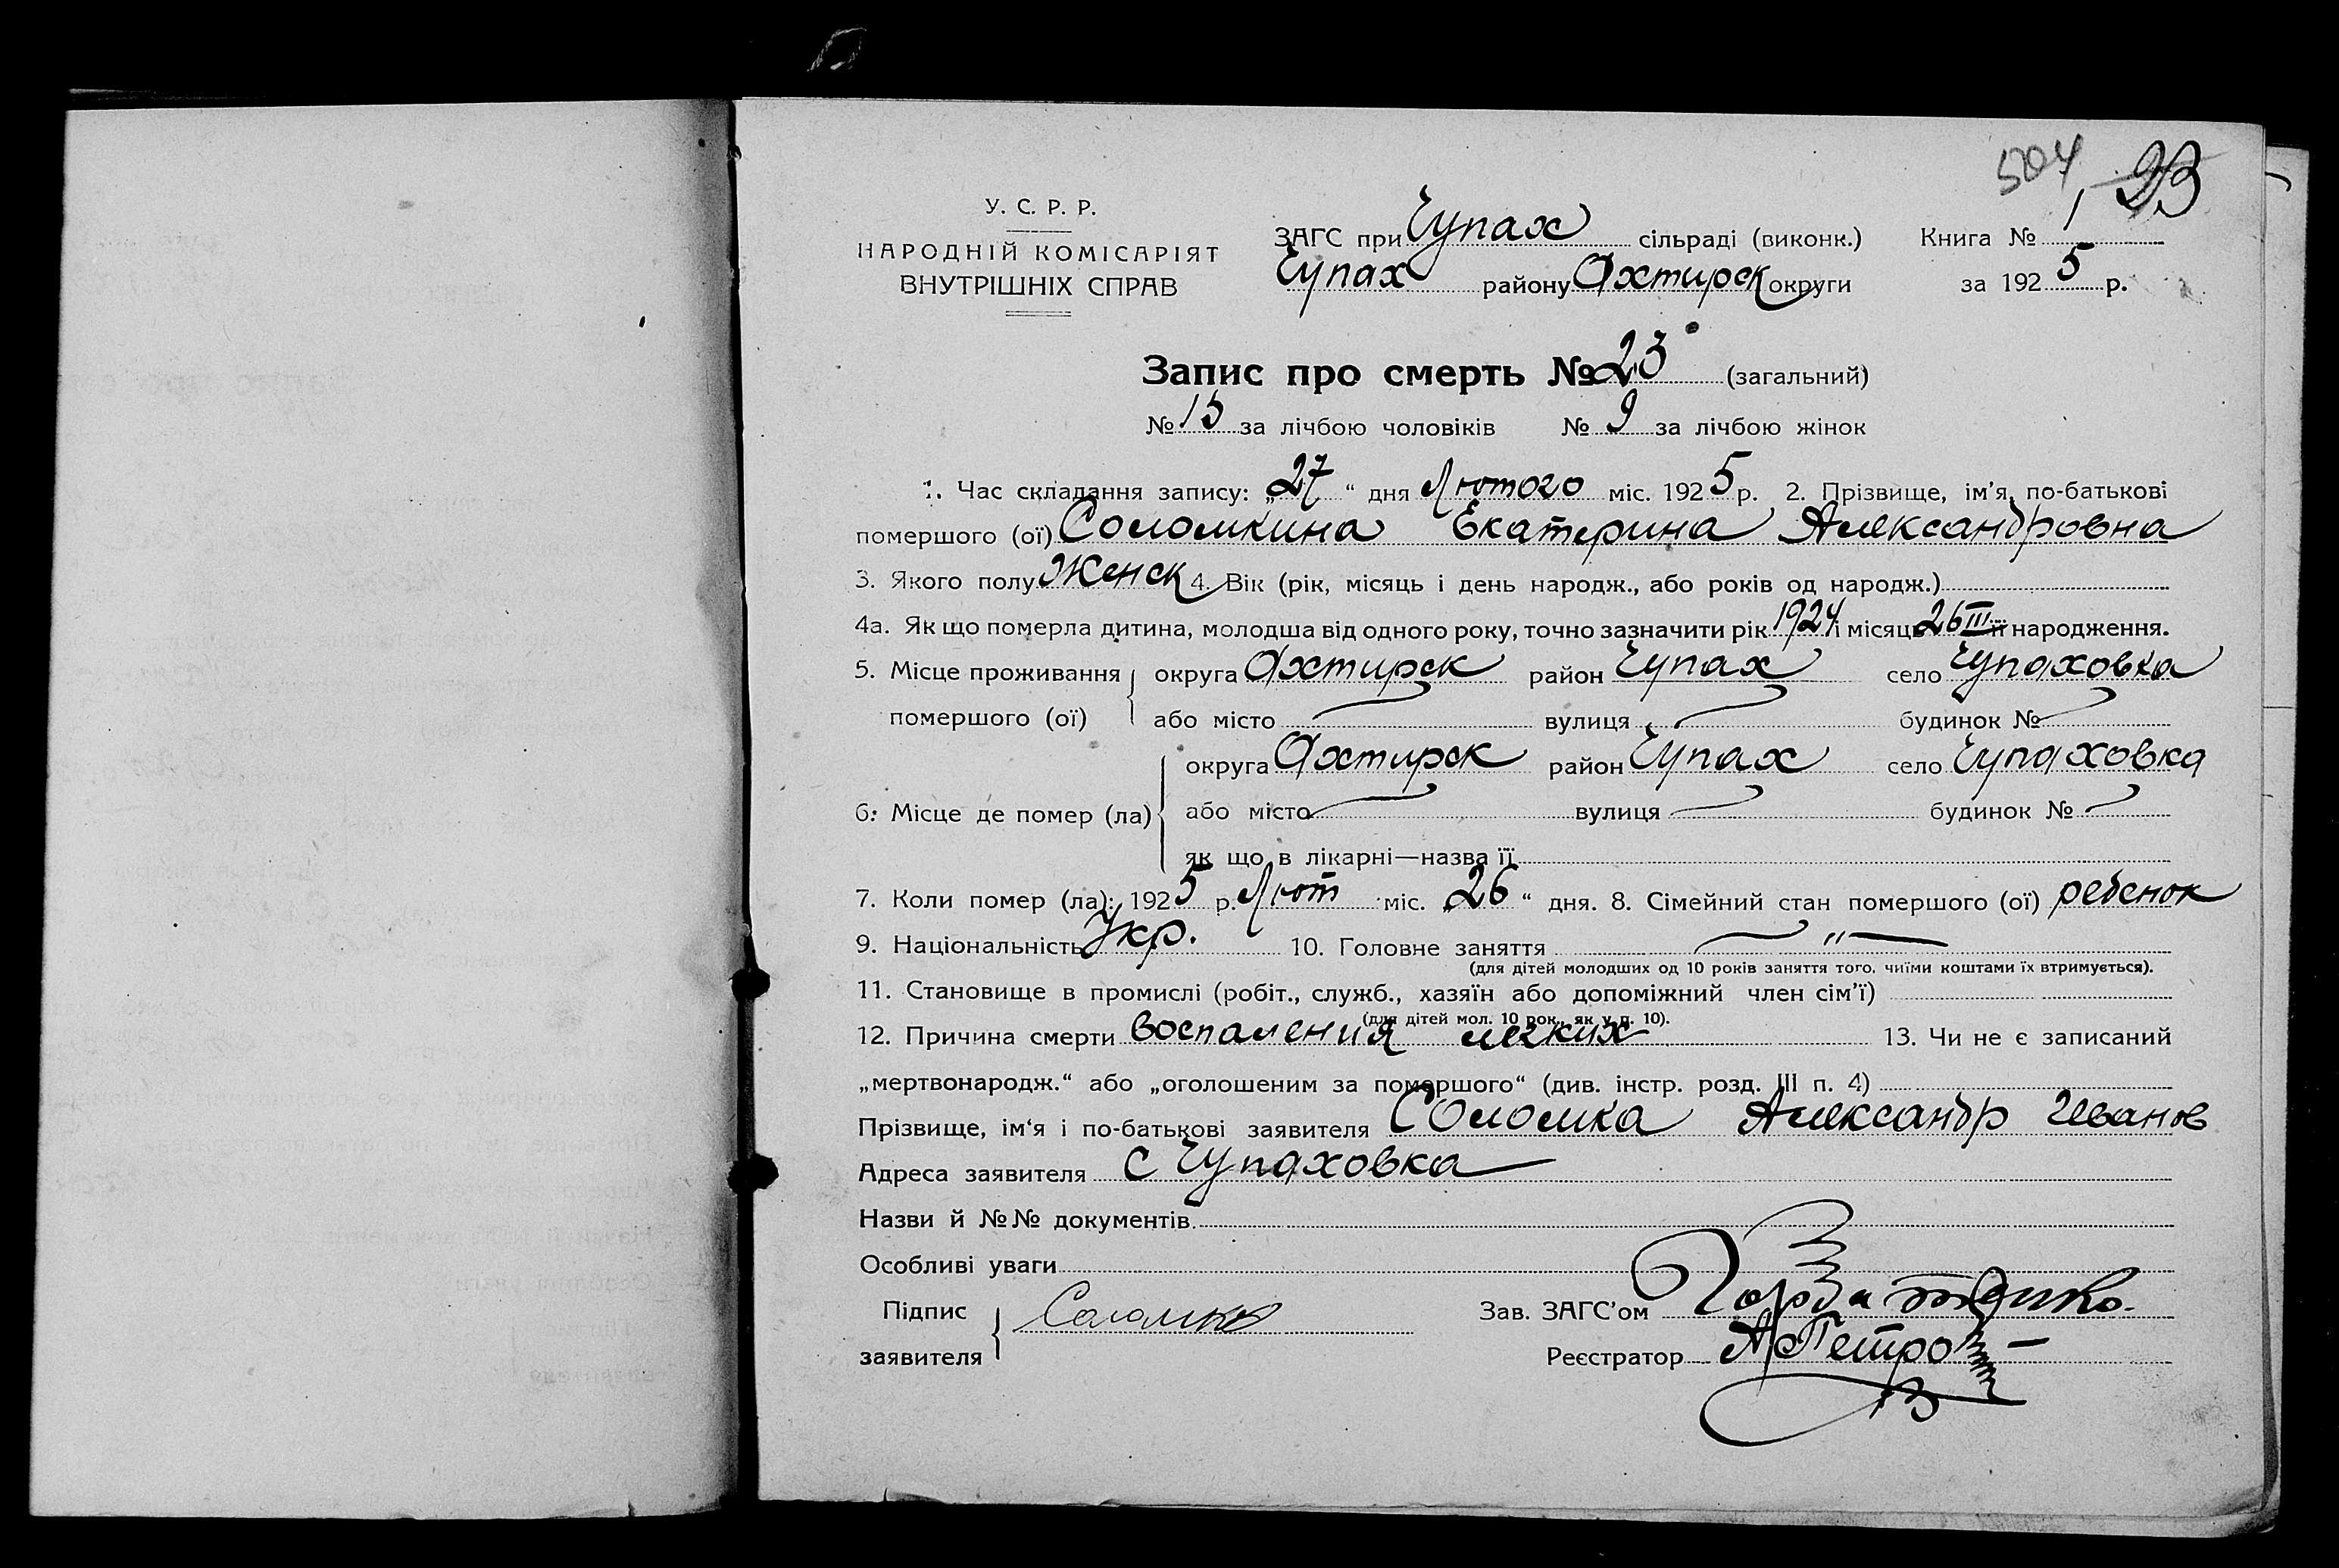 504 23
У. С. Р. Р.
НАРОДНІЙ КОМІСАРІЯТ
ВНУТРІШНІХ СПРАВ
ЗАГС при Чупах сільраді (виконк.) Книга № 1
Чупах району Охтирск округи за 1925 р.
Запис про смерть № 23 (загальний)
№ 15 за лічбою чоловіків № 9 за лічбою жінок
1. Час складання запису: „27“ дня Лютого міс. 1925 р. 2. Прізвище, ім'я, по-батькові
помершого (ої) Соломкина Екатерина Александровна
3. Якого полу Женск 4. Вік (рік, місяць і день народж., або років од народж.)
4а. Як що померла дитина, молодша від одного року, точно зазначити рік 1924 і місяць 26 III її народження.
5. Місце проживання округа Охтирск район Чупах село Чупаховка
помершого (ої) або місто вулиця будинок №
округа Охтирск район Чупах село Чупаховка
6. Місце де помер (ла) або місто вулиця будинок №
як що в лікарні—назва її
7. Коли помер (ла): 1925 р. Лют міс. „26“ дня. 8. Сімейний стан помершого (ої) ребенок
9. Національність Укр. 10. Головне заняття — " —
(для дітей молодших од 10 років заняття того, чиїми коштами їх втримується).
11. Становище в промислі (робіт., служб., хазяїн або допоміжний член сім'ї)
(для дітей мол. 10 рок., як у п. 10).
12. Причина смерти воспаления легких 13. Чи не є записаний
„мертвонародж.“ або „оголошеним за помершого“ (див. інстр. розд. III п. 4)
Прізвище, ім'я і по-батькові заявителя Соломка Александр Иванов
Адреса заявителя с Чупаховка
Назви й №№ документів
Особливі уваги
Підпис Соломко Зав. ЗАГС'ом
заявителя Реєстратор